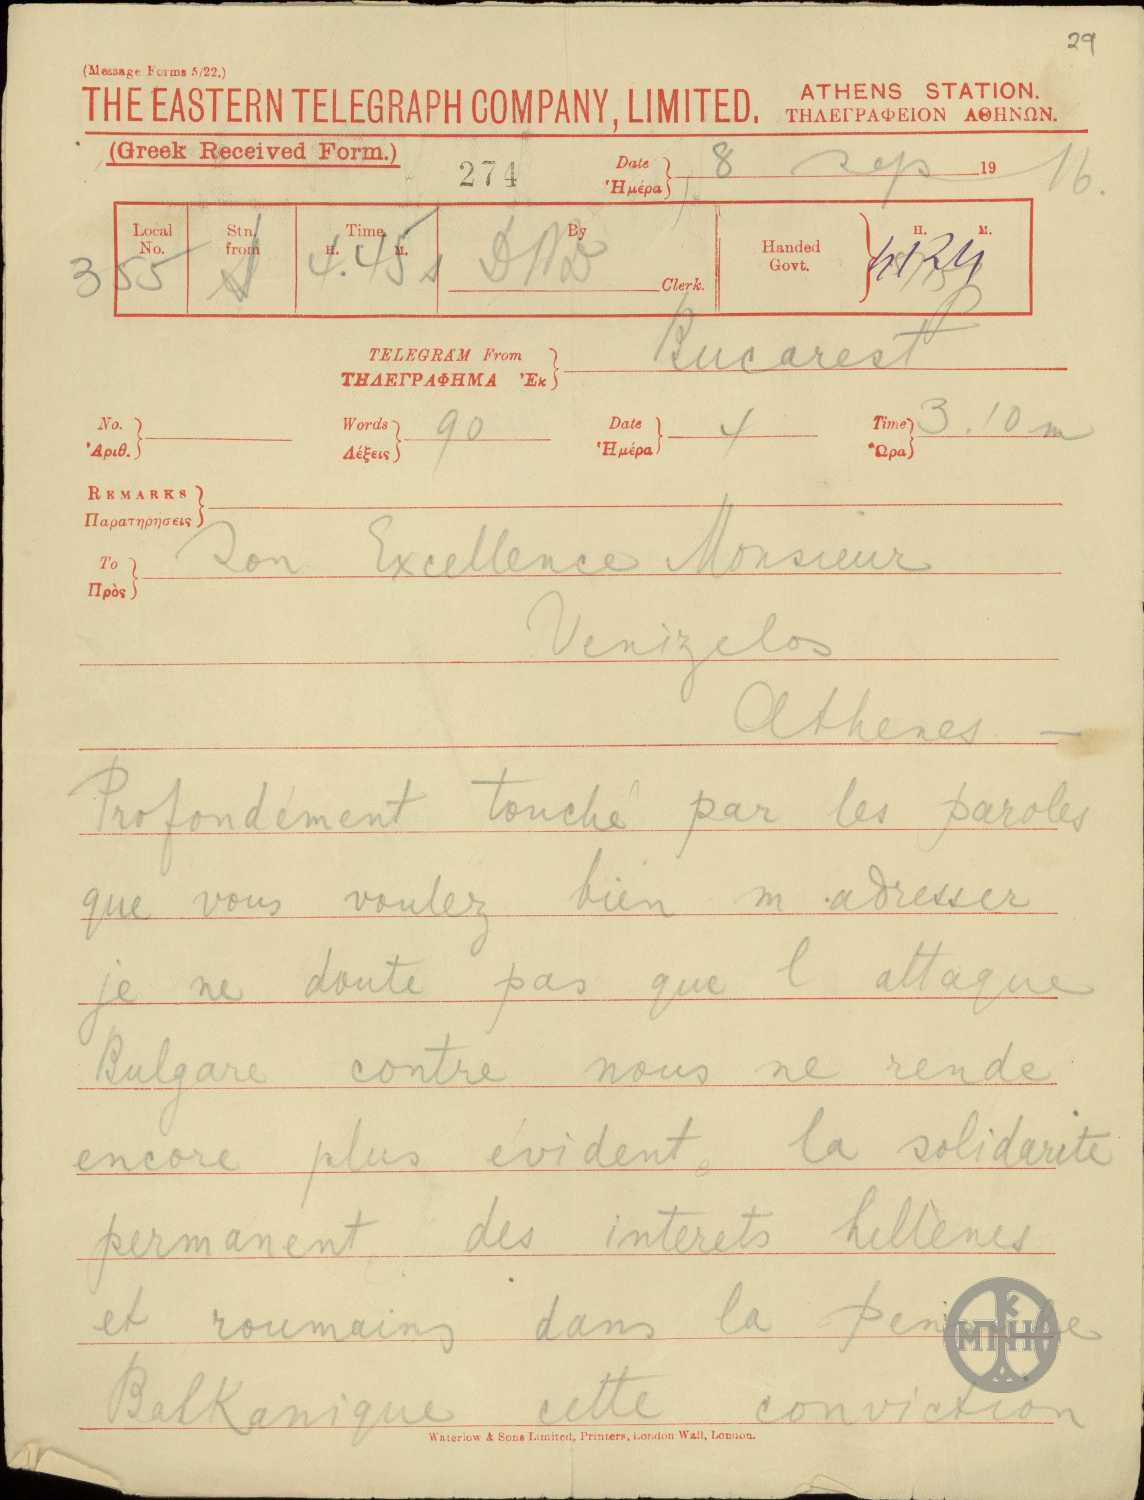 29
(Message Forms 5/22.)
THE EASTERN TELEGRAPH COMPANY, LIMITED. ATHENS STATION.
ΤΗΛΕΓΡΑΦΕΙΟΝ ΑΘΗΝΩΝ.
(Greek Received Form.) 274 Date 8 Sep 1916.
Ἡμέρα
Local No. Stn. from Time H. M. By Handed Govt. H. M.
355 4.45 Clerk.
TELEGRAM From Bucarest
ΤΗΛΕΓΡΑΦΗΜΑ Ἐκ
No. Words 90 Date 4 Time 3.10 m
Ἀριθ. Λέξεις Ἡμέρα Ὥρα
REMARKS
Παρατηρήσεις
To Son Excellence Monsieur
Πρὸς
Venizelos
Athenes —
Profondément touché par les paroles
que vous voulez bien m adresser
je ne doute pas que l attaque
Bulgare contre nous ne rende
encore plus évident la solidarite
permanent des interets hellènes
et roumains dans la
Balkanique cette conviction
ΜΠΗ
Waterlow & Sons Limited, Printers, London Wall, London.